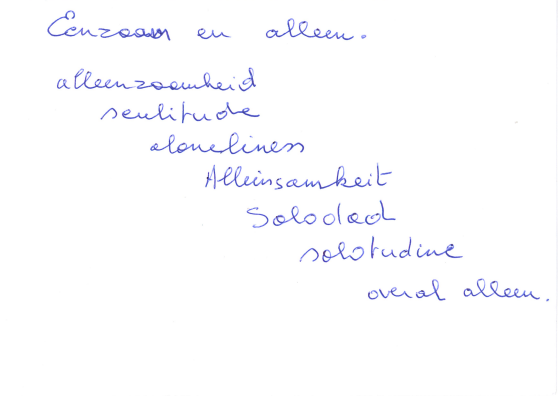 Eenzaam en alleen.
alleenzaamheid
seulitude
aloneliness
Alleinsamkeit
Solodad
solotudine
overal alleen.